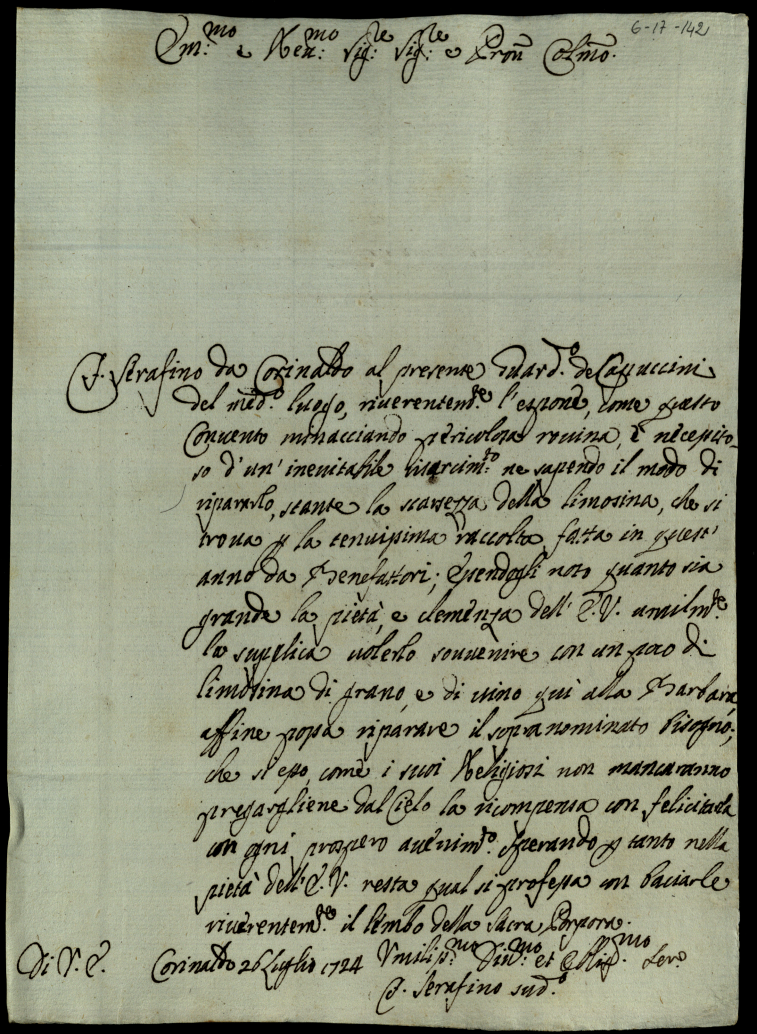 6-17-142
Em:mo e Rev:mo Sig:re Sig:re e Pron Colmo.
F. Serafino da Corinaldo al presente Guard.o de Cappuccini
del med.o luogo, riverentem.te l'espone, come questo
Convento minacciando pericolosa rovina, è necessito-
so d'un' inevitabile risarcim:to ne sapendo il modo di
ripararlo, stante la scarsezza della limosina, che si
trova p la tenuissima raccolta fatta in quest'
anno da Benefattori; Essendogli noto quanto sia
grande la pietà, e clemenza dell' E.V. umilm.te
la supplica volerlo souvenire con un poco di
limosina di grano, e di vino quì alla Barbara,
affine possa riparare il sopranominato bisogno;
che sì esso, come i suoi Religiosi non mancaranno
pregargliene dal Cielo la ricompensa con felicitarla
con ogni prospero avenim.to Sperando p tanto nella
pietà dell' E.V. resta qual si professa con baciarle
riverentem.te il lembo della Sacra Porpora.
Di V. E. Corinaldo 26 Luglio 1724 Umiliss:mo Div:mo et Obligt.mo Serv.o
F. Serafino sud.o